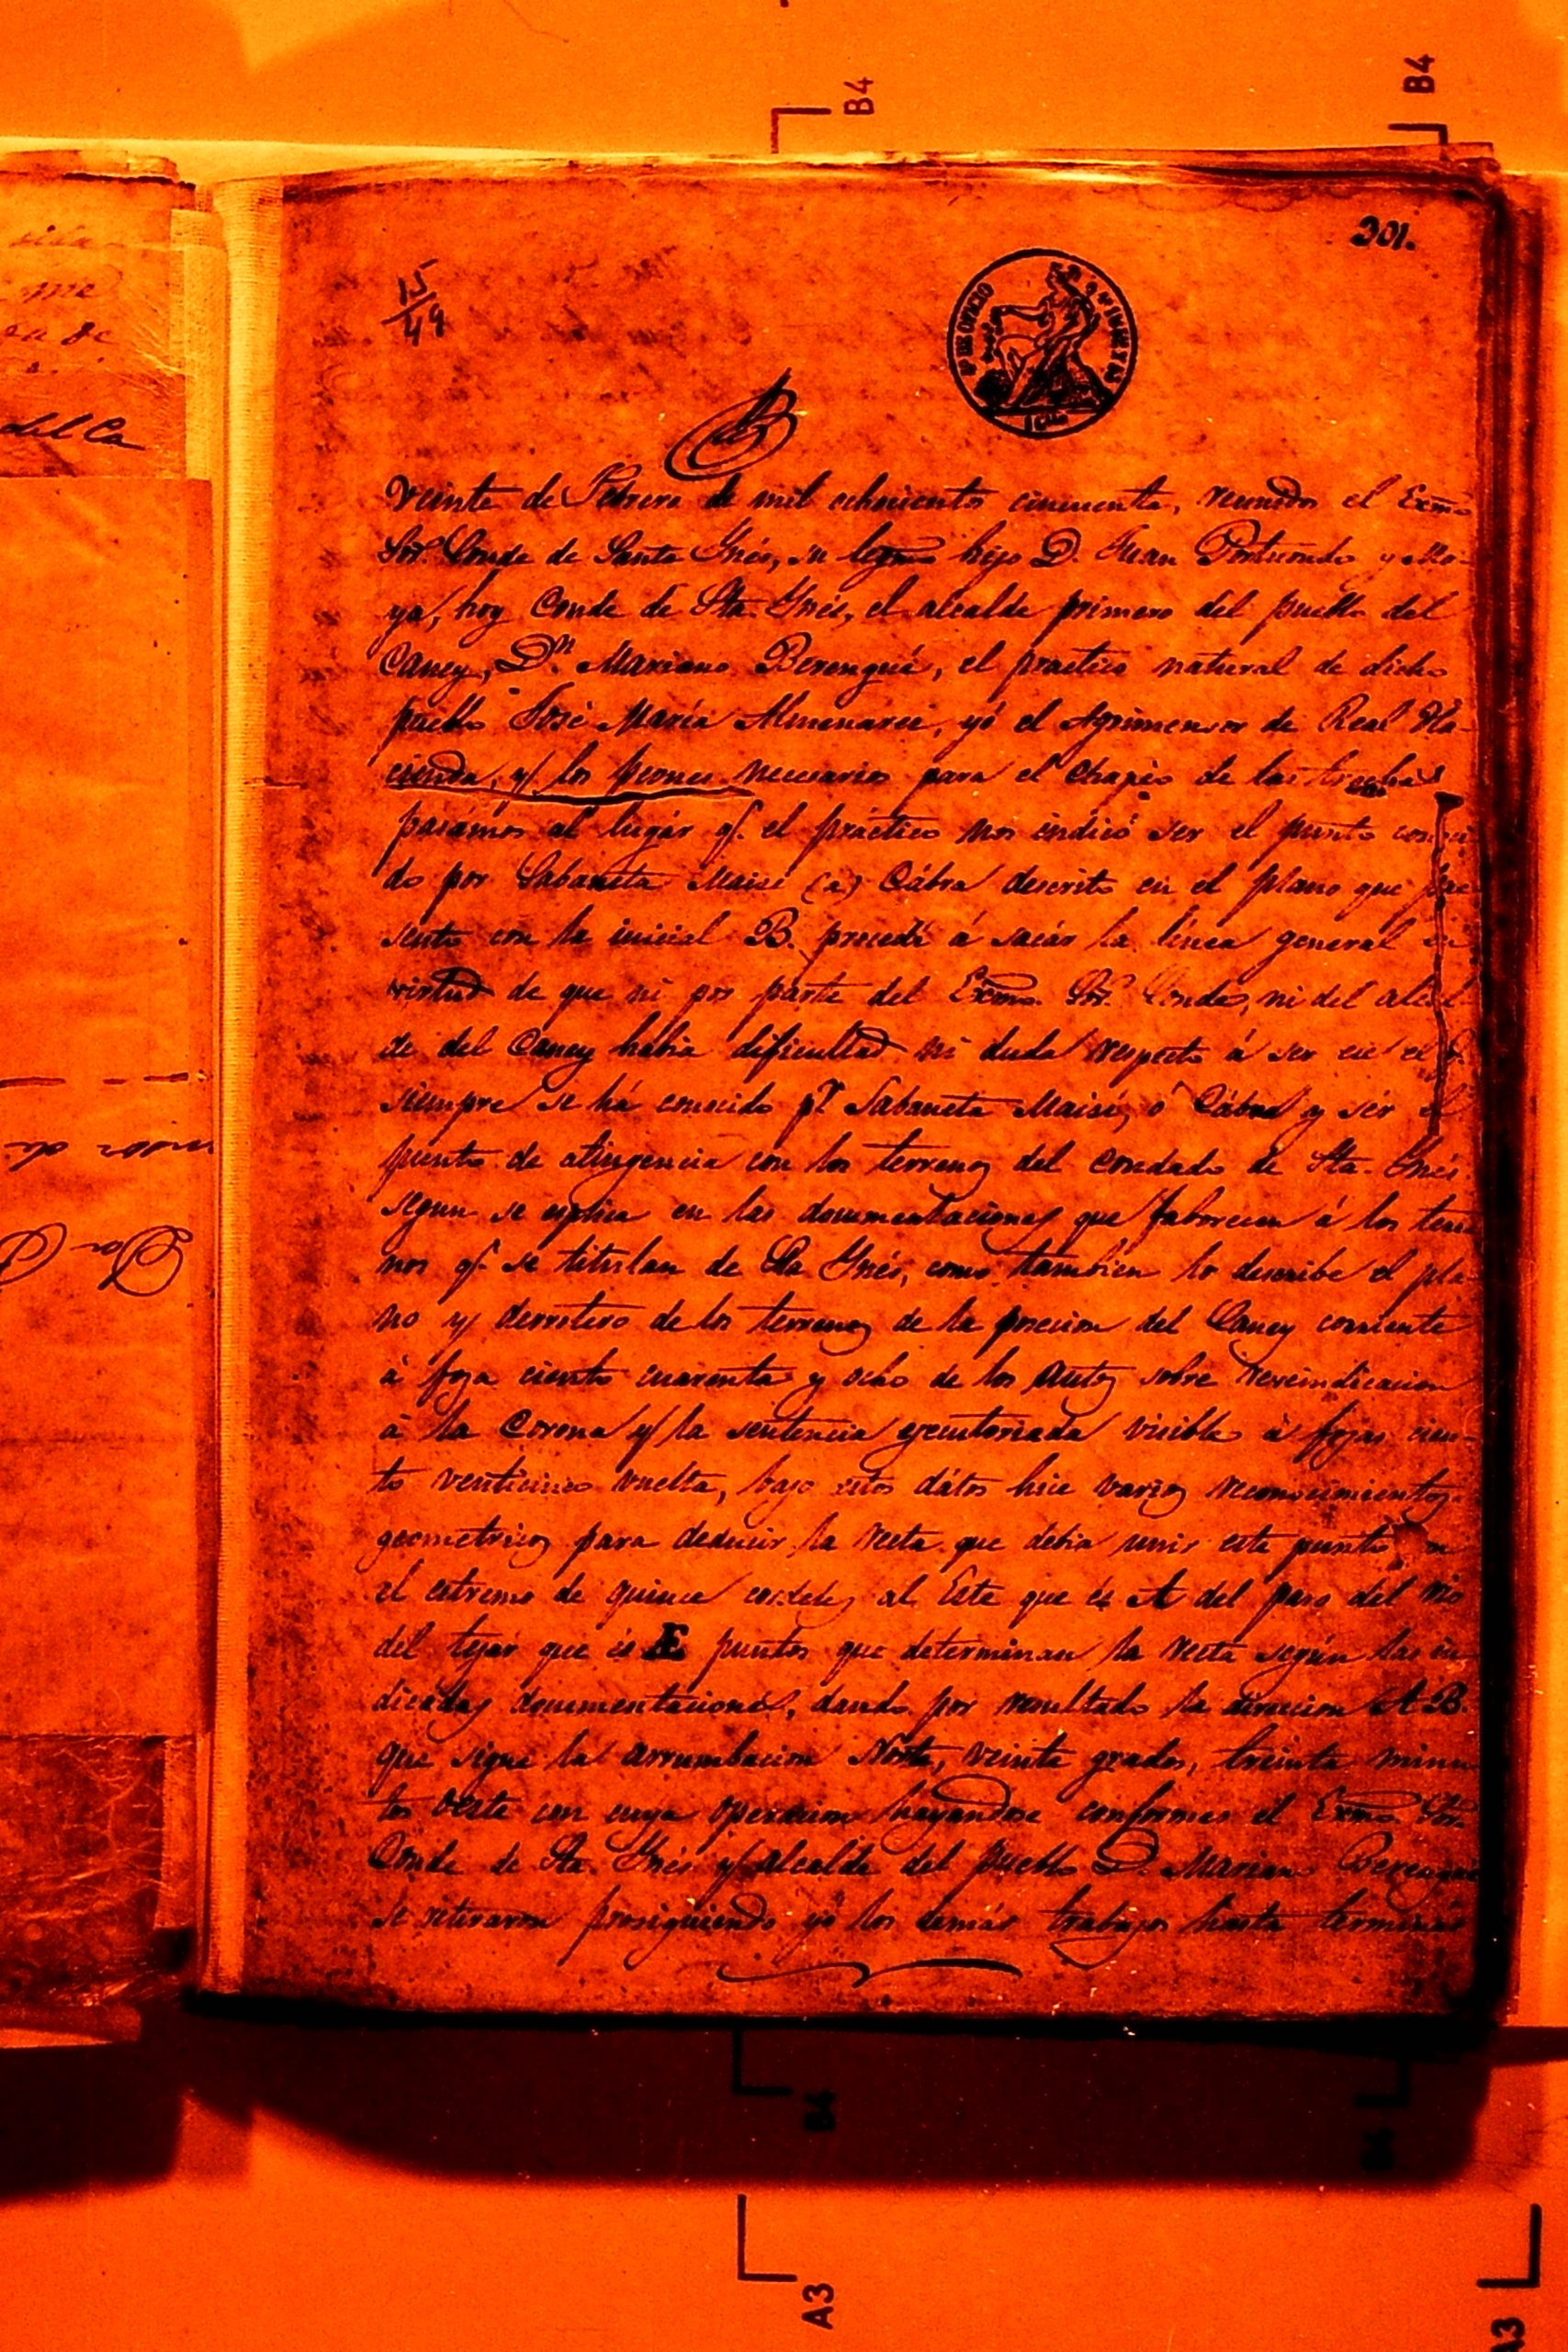 B4
B4
301.
15/49
veinte de Febrero de mil ochocientos cincuenta, reunidos el Exmo
Sor. Conde de Santa Ynés, su legmo hijo D. Juan Portuondo y Mo-
ya, hoy Conde de Sta. Ynés, el alcalde primero del pueblo del
Caney, Dn. Mariano Berengué, el practico natural de dicho
pueblo José María Almenares, yó el Agrimensor de Real Ha-
cienda, y los peones necesarios para el chapéo de las trochas
pasámos al lugár q. el práctico nos indicó ser el punto conoci
do por Sabaneta Maisí (a) Cábra descrito en el plano que pre
sento con la inicial B. procedí á sacár la línea general en
virtud de que ni por parte del Exmo. Sor. Conde, ni del alcal
de del Caney habia dificultad ni duda respecto á ser ese el q.
siempre se há conocido pr. Sabaneta Maisí, ó Cábra y sér el
punto de atingencia con los terrenos del condado de Sta. Ynés
segun se esplica en las documentaciones que faborecen á los terre
nos q. se titulan de Sta Ynés, como tambien lo describe el pla-
no y derrotero de los terrenos de la poscion del Caney corriente
á foja ciento cuarenta y ocho de los autos sobre reveindicacion
á la Corona y la sentencia ejecutoriada visible á fojas cien-
to venticinco vuelta, bajo estos dátos hice varios reconocimientos
geometricos para deducir la recta que debia unir este punto, en
el estremo de quince cordeles al Este que és A del paso del rio
del tejár que és E puntos que determinan la recta según las in
dicadas documentaciones, dando por resultado la direccion A B.
que sigue la arrumbacion Norte, veinte grados, treinta minu
tos oeste con cuya operacion hayandose conformes el Exmo. Sor.
Conde de Sta. Ynés y Alcalde del pueblo D. Mariano Berengué
se retiraron prosiguiendo yó los demás trabajos hasta terminár
B4
A3
A3